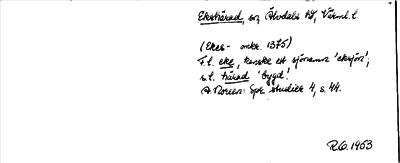 Ekshärad, sn, Älvdals hd, Värml. l.
(Ekes- omkr. 1375)
F.l. eke, kanske ett sjönamn 'eksjön';
s.l. härad 'bygd'.
A. Noreen: Spr. studier 4, s. 44.
R.O. 1953